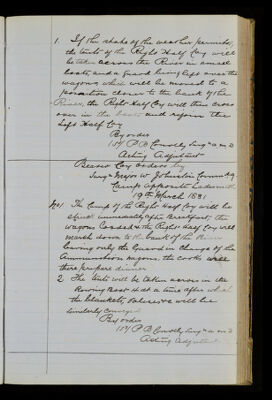 1. If the state of the weather permits,
the tents of the Right Half Coy will
be taken across the River in small
boats and a Guard being left over the
wagons which will be moved to a
position closer to the bank of the
River, the Right Half Coy will then cross
over in the boats and rejoin the
Left Half Coy
By order
P B Connolly Surg
Acting Adjutant
Bearer Coy Orders by
Surg Major W Johnston Commdg
Camp Opposite Ladysmith
19th March 1881
No 1 The Camp of the Right Half Coy will be
struck immediately after Breakfast, the
wagons loaded & the Right Half Coy will
march down to the bank of the River
leaving only the Guard in charge of the
Ammunition wagons, the cooks will
there prepare dinner
2 The tents will be taken across in the
Rowing Boat & at a time after which
the blankets, valises &c will be
similarly conveyed
By order
P B Connolly Surg
Acting Adjutant